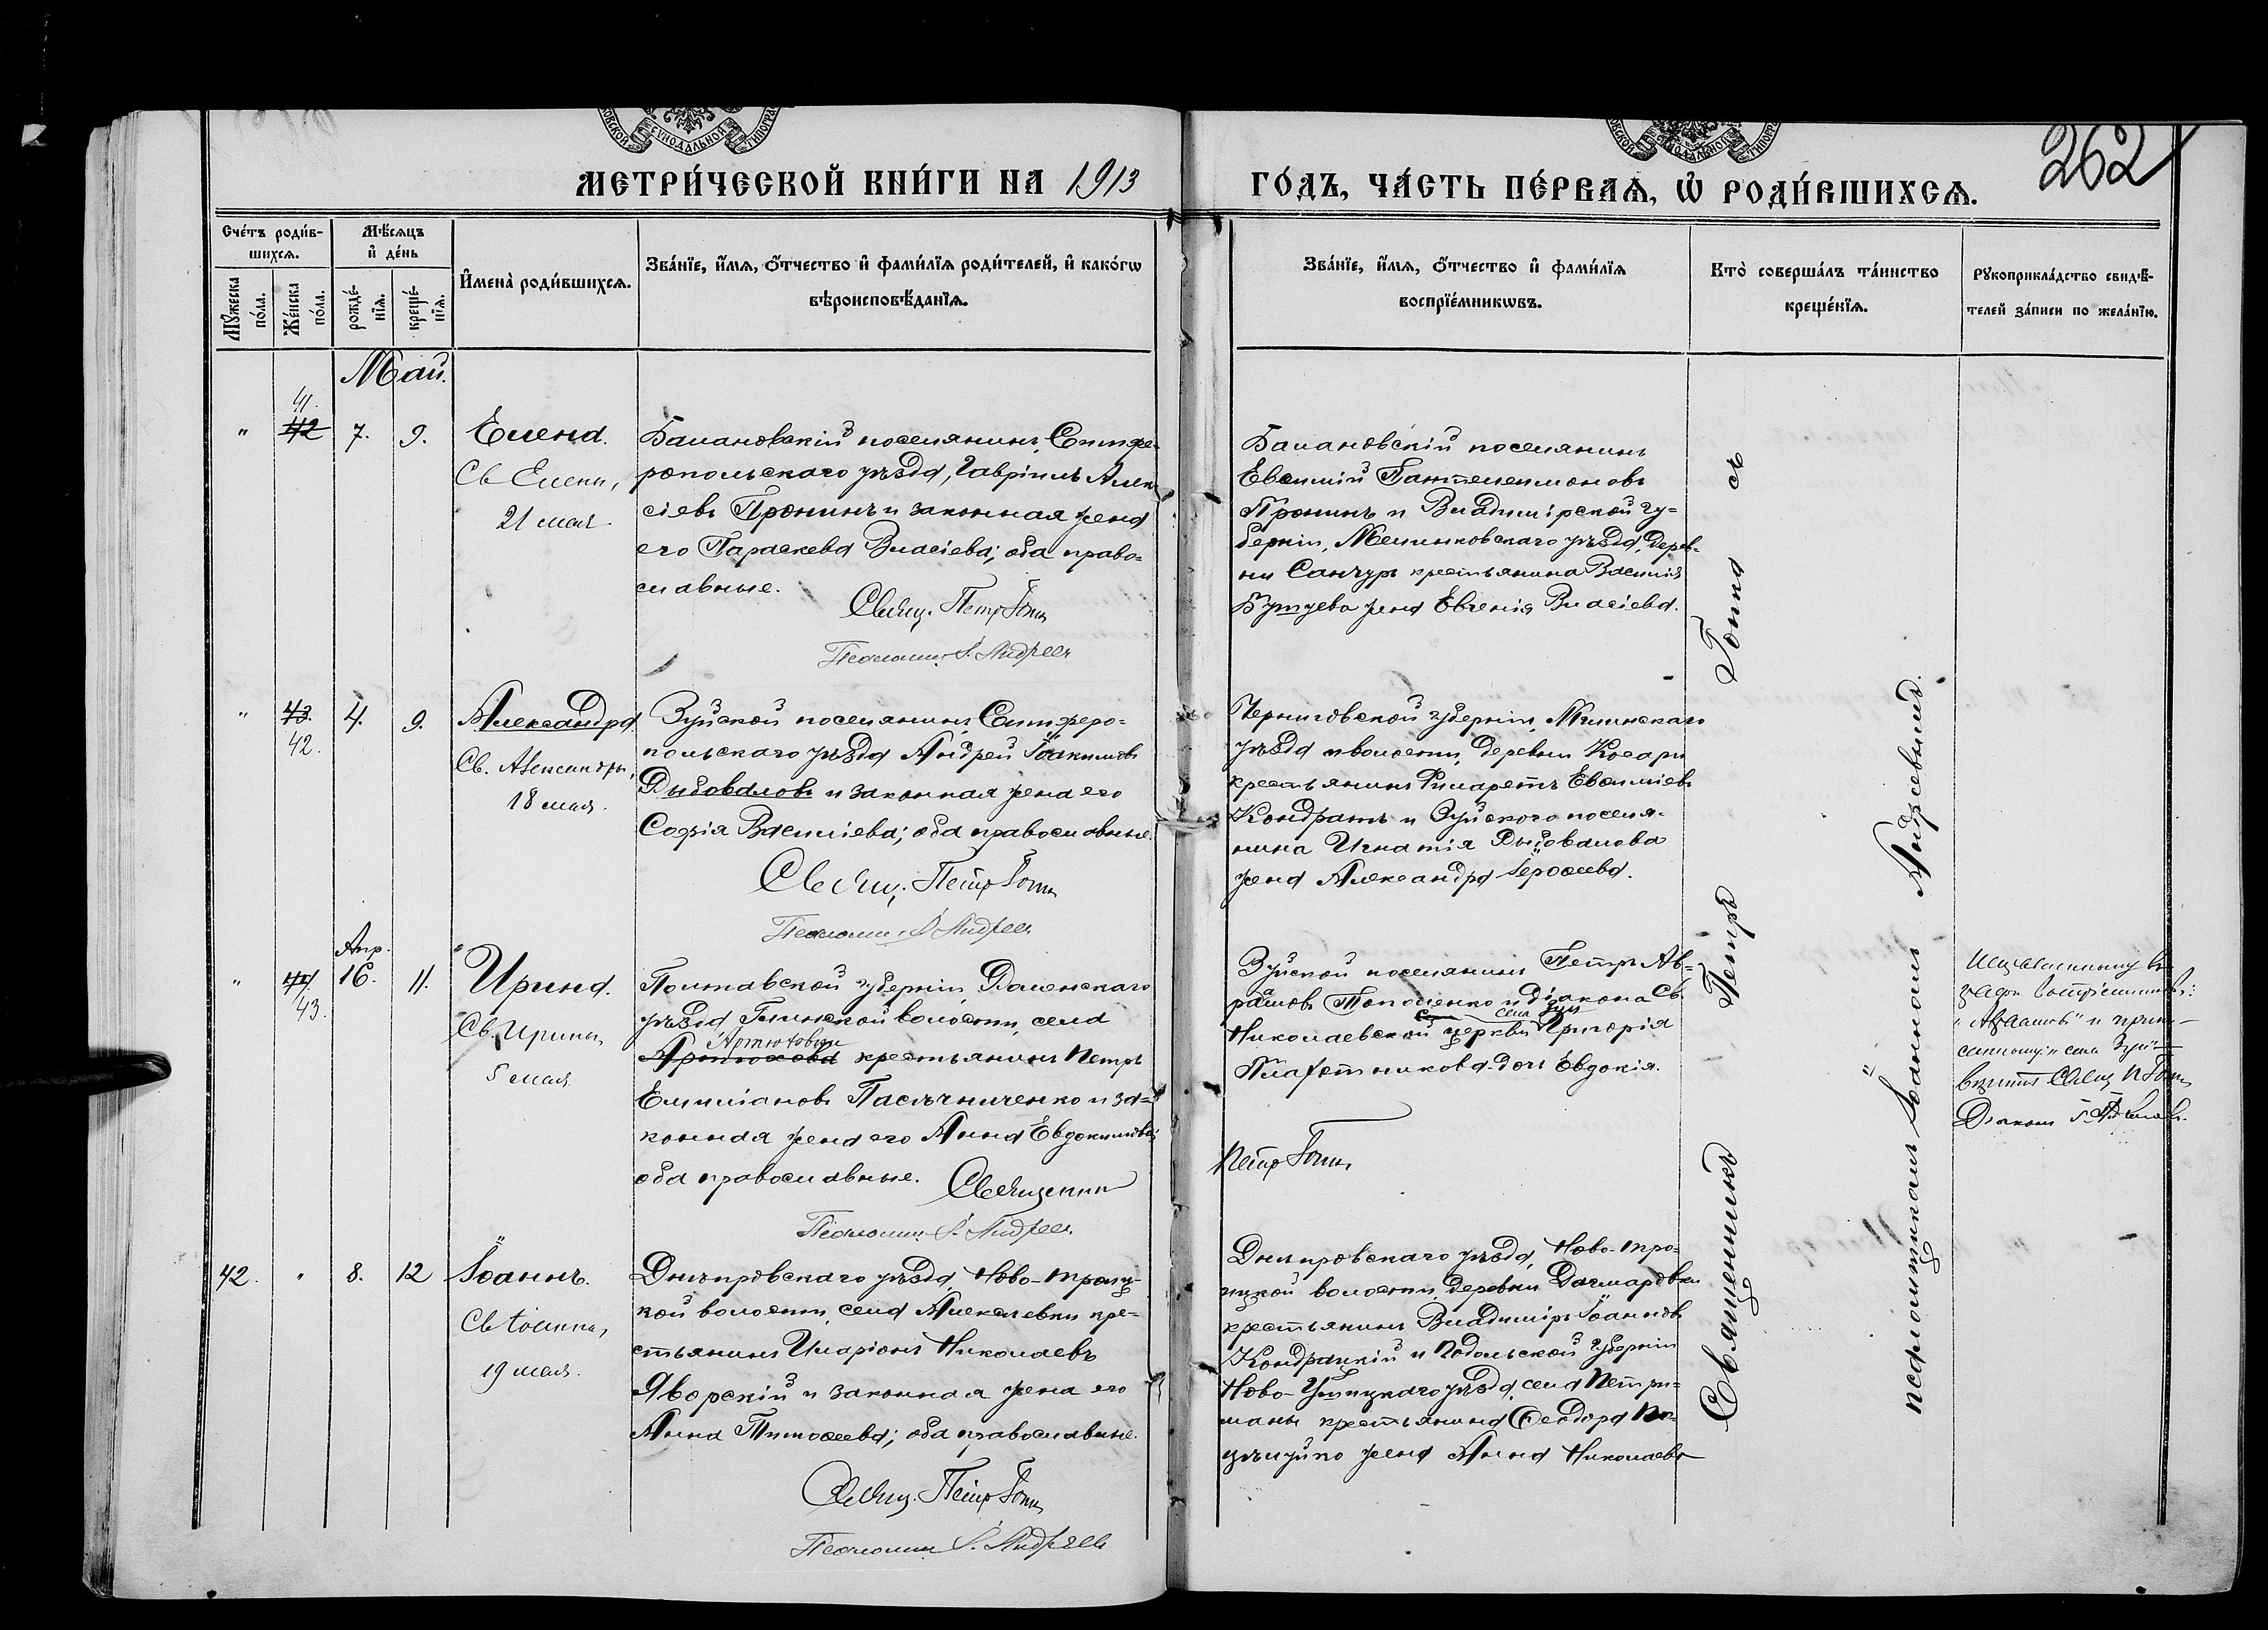 МЕТРИ́ЧЕСКОЙ КНИ́ГИ НА 1913
ГО́ДЪ, ЧА́СТЬ ПЕ́РВАѦ, Ѽ РОДИ́ВШИХСѦ.
262
Сче́тъ роди́в-
шихсѧ.
Мѣ́сѧцъ
и҆ де́нь
Мꙋ́жеска
по́ла.
Же́нска
по́ла.
рожде́-
нїѧ.
креще́-
нїѧ.
И҆мена̀ роди́вшихсѧ.
Зва́нїе, и҆́мѧ, ѻ҆́тчество и҆ фами́лїѧ роди́телей, и҆ како́гѡ
вѣроисповѣ́данїѧ.
Зва́нїе, и҆́мѧ, ѻ҆́тчество и҆ фами́лїѧ
воспрїе́мникѡвъ.
Кто̀ соверша́лъ та́инство
креще́нїѧ.
Рꙋкоприкла́дство свидѣ́-
телей за́писи по жела́нїю.
Май.
41.
" 42 7. 9.
Елена.
Св Елены,
21 мая
Балановскій поселянинъ, Симфе-
ропольскаго уѣзда, Гавріилъ Алек-
сіевъ Пронинъ и законная жена
его Параскева Власіева; оба право-
славные.
Свящ. Петръ Гопка
Псаломщ. І. Андреев
Балановскій поселянинъ
Евѳимій Пантелеимоновъ
Пронинъ и Владимірской гу-
берніи, Меленковскаго уѣзда, дерев-
ни Санчуръ крестьянина Василія
жена Евгенія Власіева.
" 43. 4. 9.
42.
Александра.
Св. Александры,
18 мая.
Зуйской поселянинъ, Симферо-
польскаго уѣзда Андрей Іоакимовъ
Дыбовалов и законная жена его
Софія Василіева; оба православные.
Свящ. Петръ Гопка
Псаломщ. І. Андреев
Черниговской губерніи, Мглинскаго
уѣзда и волости, деревни Косари
крестьянинъ Филаретъ Евѳиміевъ
Кондратъ и Зуйского поселя-
нина Игнатія Дыбовалова
жена Александра Іероѳеева.
Апр.
" 44. 16. 11.
43.
Ирина.
Св. Ирины,
5 мая.
Полтавской губерніи, Роменскаго
уѣзда, Глинской волости, села
Артюховка крестьянинъ Петръ
Емиліановъ Пасѣчниченко и за-
конная жена его Анна Евдокимова;
оба православные. Священникъ
Псаломщ. І. Андреев.
Зуйской поселянинъ Петръ Ав-
рамовъ Тополенко и діакона Св.
села Зуи
Николаевской церкви Григорія
дочь Евдокія.
Петръ Гопка
42. " 8. 12
Іоаннъ.
Св Іоанна,
19 мая.
Днѣпровскаго уѣзда, Ново-Троиц-
кой волости, села Алексѣевки кре-
стьянинъ Иларіонъ Николаевъ
Яворскій и законная жена его
Анна Тимоѳеева; оба православные.
Свящ. Петръ Гопка
Псаломщ. І. Андреев
Днѣпровскаго уѣзда, Ново-Тро-
ицкой волости, деревни Дагмаровки
крестьянинъ Владиміръ Іоанновъ
Кондрацкій и Подольской губерніи
Ново-Ушицкаго уѣзда, села Петри-
маны крестьянина Ѳеодора
жена Анна Николаева
Священникъ Петръ Гопка съ
псаломщикомъ Іоанномъ Андреевымъ.